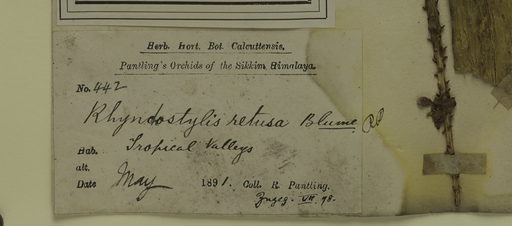 Herb. Hort. Bot. Calcuttensis.
Pantling's Orchids of the Sikkim Himalaya.
No. 442
Rhyncostylis retusa Blume
Hab. Tropical Valleys
alt.
Date May 1891. Coll. R. Pantling.
VII 98.